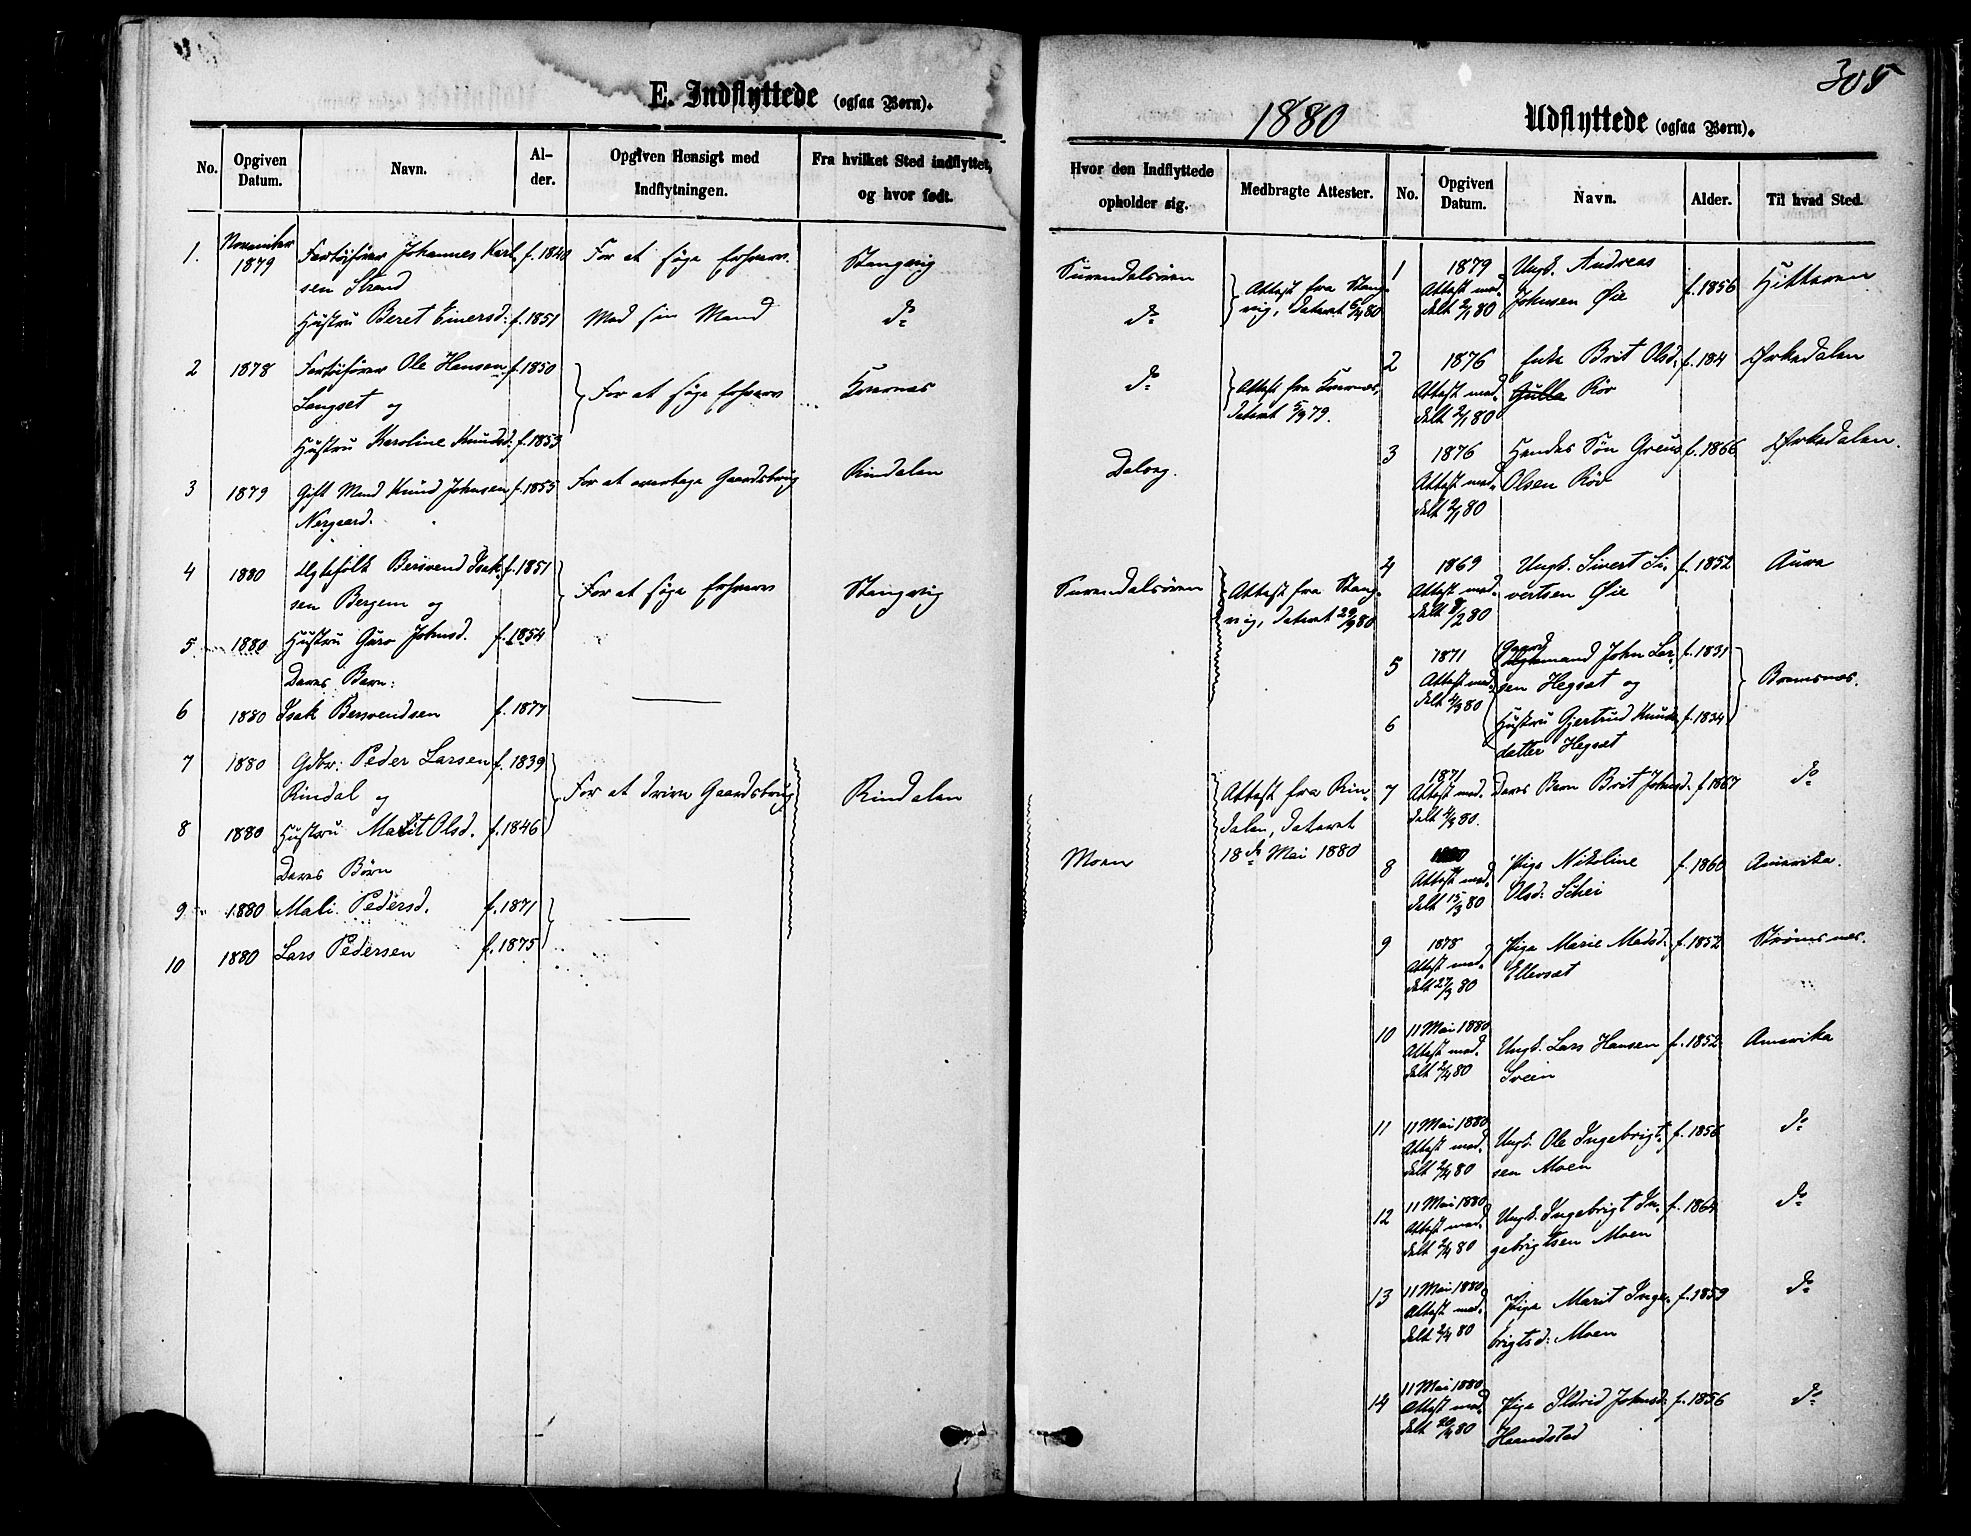 305
E. Indflyttede (ogsaa Børn).
No. Opgiven Datum. Navn. Alder. Opgiven Hensigt med Indflytningen. Fra hvilket Sted indflyttet, og hvor født.
1. November 1879 Johannes Karl f. 1840 For at søge Erhverv Stangvig
sen Strand
Hustru Beret Einersd: f. 1851 Med sin Mand do
2 1878 Ole Hansen f. 1850 For at søge Erhverv Kvernæs
Langset og
Hustru Karoline Knudsd: f. 1853
3 1879 Gift Mand Knud Johnsen f. 1855 For at overtage Gaardsbrug Rindalen
Nergaard.
4 1880 Bersvend Isak f. 1851 For at søge Erhverv Stangvig
sen Bergem og
5 1880 Hustru Guro Johnsd. f. 1854
Deres Barn:
6 1880 Isak Bersvendsen f. 1877
7 1880 Gdbr: Peder Larsen f. 1839 For at drive Gaardsbrug Rindalen
Rindal og
8 1880 Hustru Marit Olsd. f. 1846
Deres Børn
9 1880 Mali Pedersd. f. 1871
10 1880 Lars Pedersen f. 1875
1880
Udflyttede (ogsaa Børn).
Hvor den Indflyttede opholder sig. Medbragte Attester.
Surendalsøren Attest fra Stang-
do vig, dateret 5/4 80
do Attest fra Kvernæs,
dateret 5/9 79.
Dalseg.
Surendalsøren Attest fra Stang-
vig, dateret 29/9 80
Attest fra Rin-
dalen, dateret
Moen 18de Mai 1880
No. Opgiven Datum. Navn. Alder. Til hvad Sted.
1 1879 Ungk. Andreas
Attest med- Johnsen Øie f. 1856 Hitteren
delt 2/1 80
2 1876 Enke Brit Olsd. f. 184 Ørkedalen
Attest med- Gulla Rör
delt 2/1 80
3 1876 Hendes Søn f. 1866 Ørkedalen.
Attest med- Olsen Rör
delt 2/1 80
4 1869 Ungk. Sivert Si- f. 1852 Aure
Attest med- vertsen Øie
delt 8/2 80
5 1871 Gaard mand John Lar- f. 1831 Bremsnes.
Attest med- sen Hegset og
delt 4/3 80
6 Hustru Gjertrud Knuds f. 1834
datter Hegset
7 1871 Deres Barn Brit Johnsd. f. 1867 do
Attest med-
delt 4/3 80.
8 Pige Nikoline f. 1860 Amerika.
Attest med- Olsd: Schei
delt 15/3 80
9 1878 Pige Marie Madsd. f. 1852 Strømsnes.
Attest med- Ellevset
delt 27/3 80
10 11 Mai 1880 Ungk. Lars Hansen f. 1852 Amerika
Attest med- Svein
delt 2/4 80
11 11 Mai 1880 Ungk. Ole Ingebrigt- f. 1856 do
Attest med- sen Moen
delt 2/4 80
12 11 Mai 1880 Ungk. Ingebrigt In- f. 1864 do
Attest med- gebrigtsen Moen
delt 2/4 80
13 11 Mai 1880 Pige Marit Inge- f. 1859 do
Attest med- brigtsd: Moen
delt 2/4 80
14 11 Mai 1880 Pige Ildrid Johnsd. f. 1856 do
Attest med- Haandstad
delt 20/4 80